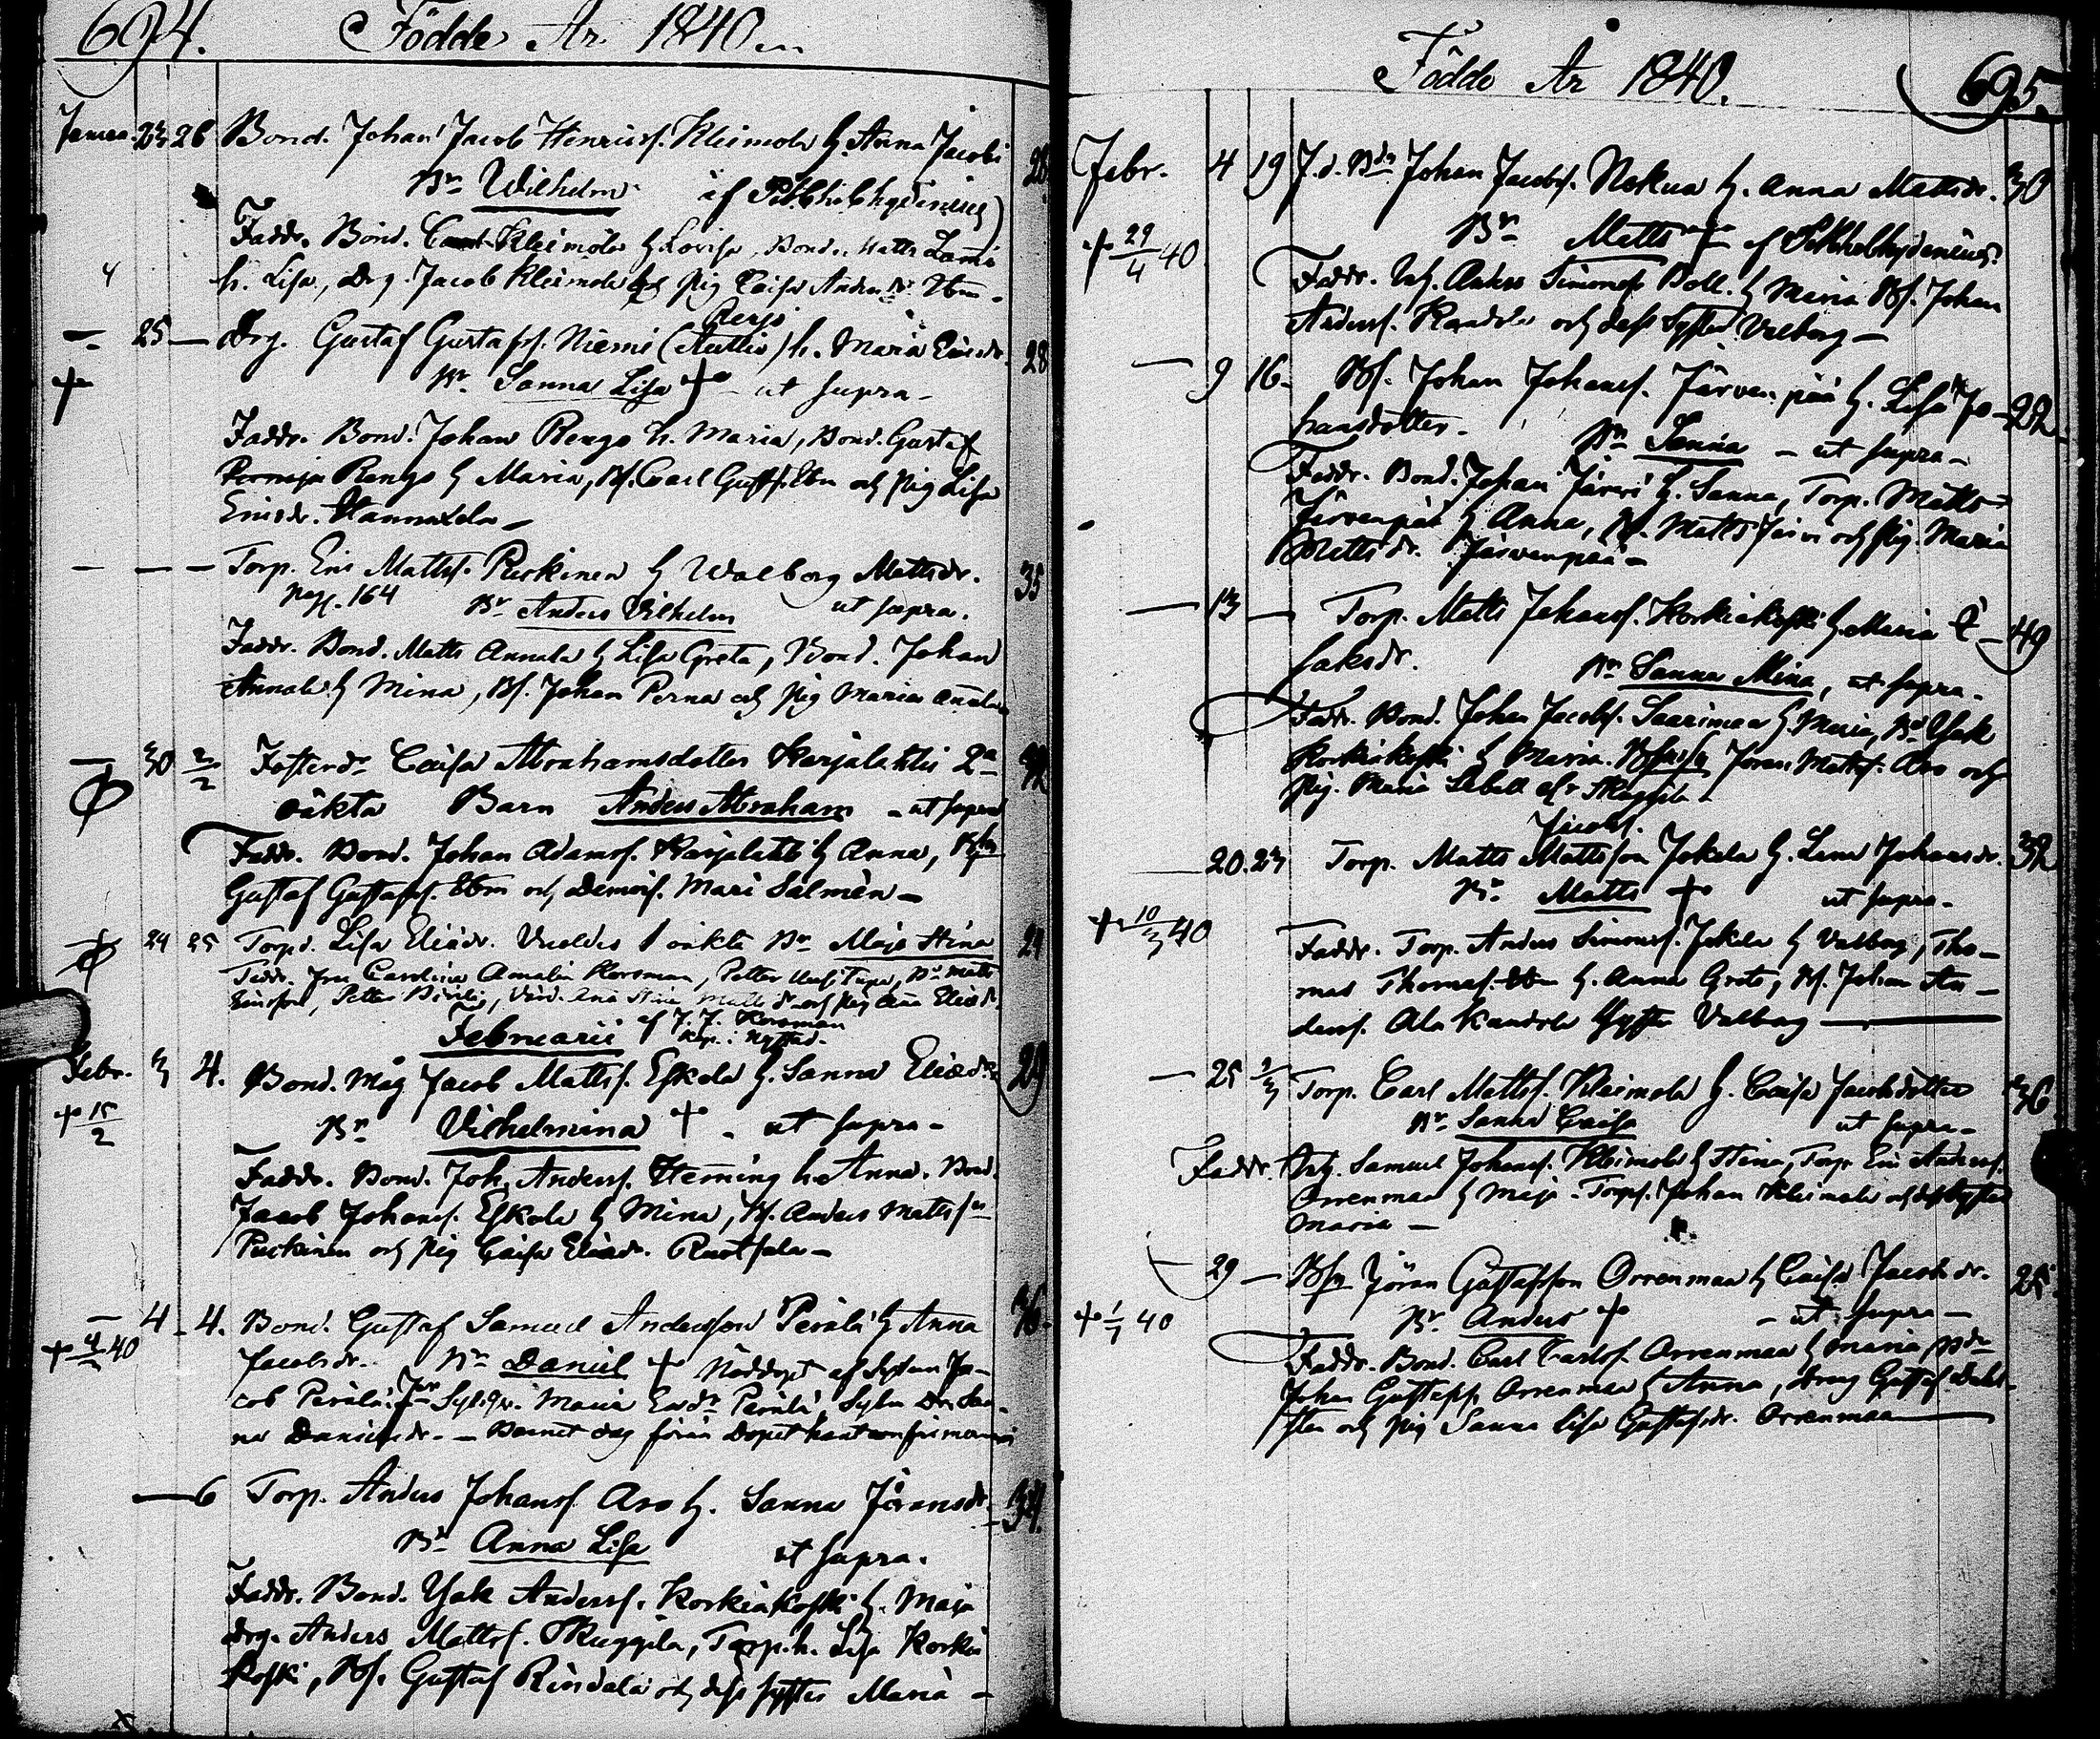 694. Födde År 1840
Januar. 23 26 Bond. Johan Jacob Henricsf. Kleimola h. Anna Jacobs 28
Bn Wilhelm af
Faddr. Bond. Kleimola h Lovisa, Bond. Matts Lami
h. Lisa, Drg. Jacob Kleimola och Pig Caisa Anders dr.
— 25 — Drg. Gustaf Gustafss. Niemi (Anttis) h. Maria Ericsdr. 28
+ Bn Sanna Lisa + ut supra —
Faddr. Bond. Johan Rengo h. Maria, Bond. Gustaf
Rengo h Maria, Bs. Carl Gustfs. Ebm och Pig Lisa
Ericsdr. Hannuxela —
— — — Torp. Eric Mattss. Puckinen h Walborg Mattsdr. 35
pag. 164 Bn Anders Vilhelm ut supra.
Faddr. Bond. Matts Annala h Lisa Greta, Bond. Johan
Annala h Mina, Bs. Johan Perna och Pig Maria Annala
— 30 2/2 Fosterdr Caisa Abrahamsdotter Karjalahti 2a 32
oäkta Barn Anders Abraham — ut supra
Faddr. Bond. Johan Adamsf. Karjalahti h Anna,
Gustaf Gustafss. Ebm och Demois. Mari Salmén —
24 25 Torpd. Lisa Eliædr. oäkta Bn Maja Stina 21
Faddr. Fru Carolina Amalia Korsman, Petter
Februarii af J. J. Korsman
Febr. 3 4. Bond. Måg Jacob Mattss. Eskola h. Sanna Eliædr. 29
+ 15/2 Bn Vilhelmina + — ut supra —
Faddr. Bond. Joh. Anderss. Heming h. Anna. Bond.
Jacob Johanss. Eskola h Mina, Bs. Anders Mattsson
Puckinen och Pig Caisa Eliædr. Ruotsala —
— 4 4. Bond. Gustaf Samuel Andersson Perälä h Anna 36
+ 4/2 40 Jacobsdr. Bn Daniel + Nöddöpt af Sytun Ja-
cob Perälä. Maria Ersdr Perälä, Sytn Dr. San-
na Danielsdr. — Barnet dog förän Dopet hant confirmeras
— 6 Torp. Anders Johanss. Aro h. Sanna Jöransdr. 34.
Bn Anna Lisa ut supra.
Faddr. Bond. Ysak Anderss. Korkiakoski h. Maja
Drg. Anders Mattss. Skuggila, Torp. h. Lisa Korkia
koski, Bs. Gustaf Rindala och dess syster Maria —
Födde År 1840. 695.
Febr. 4 19 J. d. Bdn Johan Jacobss. Nokua h. Anna Mattsdr. 30
+ 29/4 40 Bn Matts + af
Faddr. Anders Simonss Boll. h Maria Bs. Johan
Anderss. Kandola och dess Syster Valborg —
— 9 16 Bs. Johan Johanss. Järvenpää h. Lisa Jo- 22
hansdotter. Bn Sanna — ut supra —
Faddr. Bond. Johan Järvi h. Sanna, Torp. Matts
Järvenpää h Anna, Bs. Matts Järvi och Pig. Maria
Mattsdr. Järvenpää —
— 13 — Torp. Matts Johanss. Korkiakoski h. Maria I- 49
saksdr. Bn Sanna Mina, ut supra —
Faddr. Bond. Johan Jacobss. Saarimaa h. Maria, Bd Ysak
Korkiakoski h Maria. Jöran Mattss. Aro och
Pig. Maria Lebell Skuggila —
Jacobs.
20. 23 Torp. Matts Mattsson Jokela h. Lena Johansdr. 32
+ 10/3 40 Bn Matts + ut supra —
Faddr. Torp. Anders Simonss. Jokela h Valborg, Tho-
mas Thomass. Ebm h. Anna Greta, Bs. Johan An-
derss. Ala Kandola Syster Valborg —
— 25 1/3 Torp. Carl Mattss. Kleimola h. Caisa Jacobsdotter 36
Bn Sanna Caisa ut supra —
Faddr. Samuel Johanss. Kleimola h Stina, Torp. Eric Anderss.
Orrenmaa h Maja. Torps. Johan Kleimola och dess syster
Maria —
— 29 — Jöran Gustafsson Orrenmaa h Caisa Jacobsdr. 25
+ 1/7 40 Bn Anders + — ut supra —
Faddr. Bond. Carl Carlss. Orrenmaa h Maria Bdn
Johan Gustafss. Orrenmaa h Anna, Dreng Gustaf Dahl-
sten och Pig Sanna Lisa Gustafsdr. Orrenmaa —